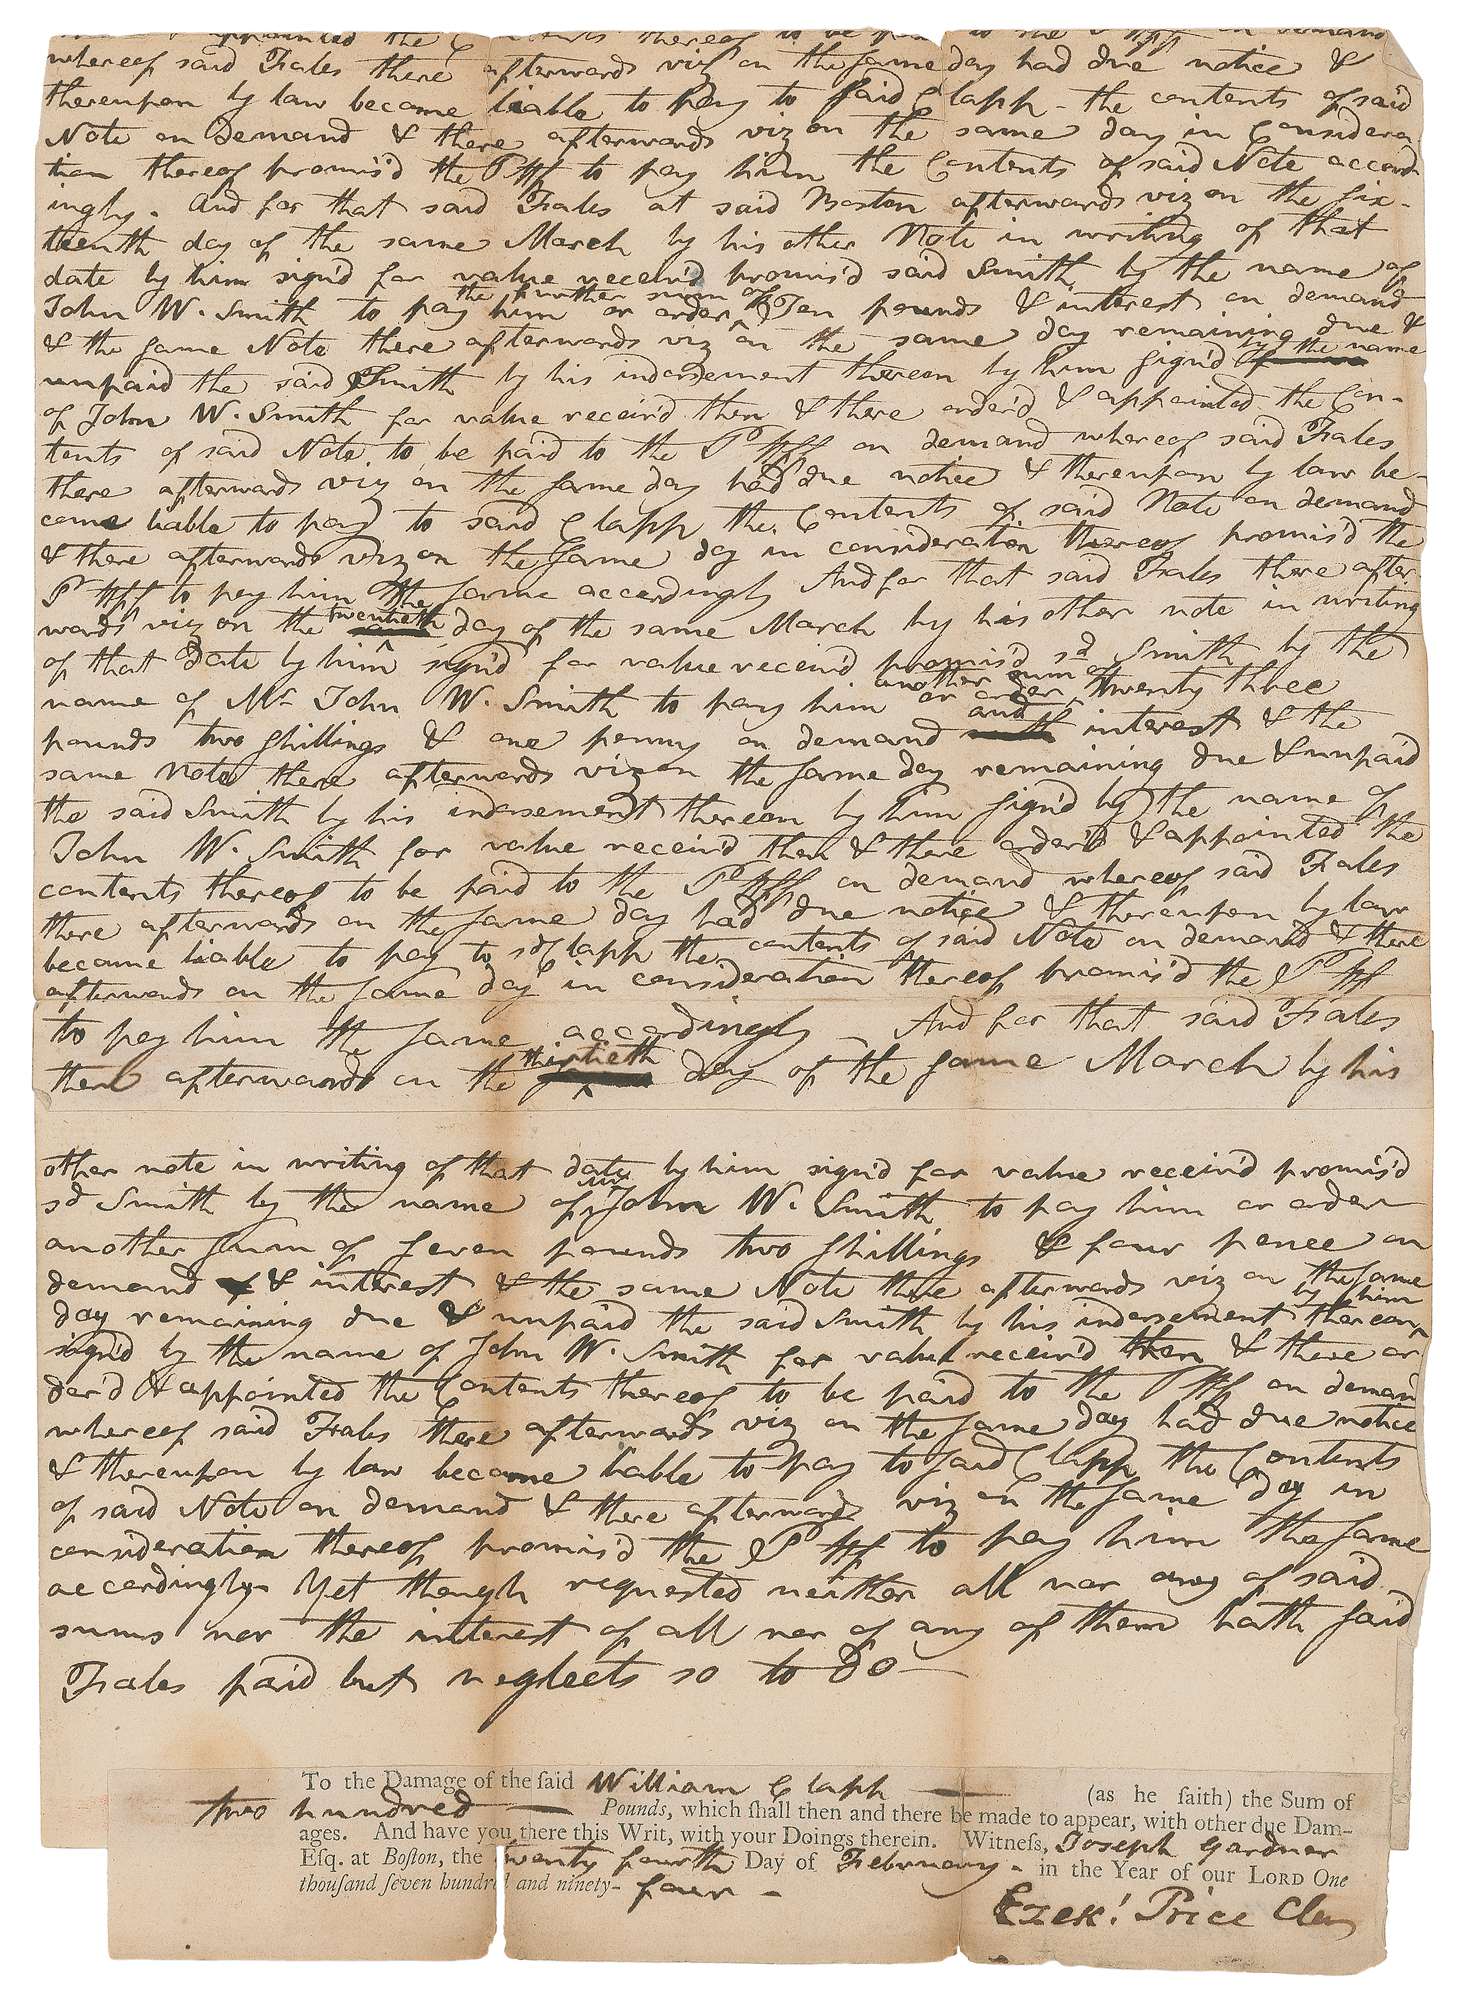 appointed the Contents thereof to be paid to the Pltff on demand
whereof said Fales there afterwards viz on the same day had due notice &
thereupon by law became liable to pay to said Clapp - the contents of said
Note on demand & there afterwards viz on the same day in Considera
tion thereof promis'd the Pltff to pay him the Contents of said Note accord
ingly. And for that said Fales at said Boston afterwards viz on the six-
teenth day of the same March by his other Note in writing of that
date by him sign'd for value receiv'd promis'd said Smith, by the name of
the further sum of
John W. Smith to pay him or order ^ Ten pounds & interest on demand
& the same Note there afterwards viz on the same day remaining due &
unpaid the said Smith by his indorsement thereon by him sign'd by the name
of John W. Smith for value receiv'd then & there order'd & appointed the Con-
tents of said Note to be paid to the Pltff on demand whereof said Fales
there afterwards viz on the same day had due notice & thereupon by law be-
came liable to pay to said Clapp the Contents of said Note on demand
& there afterwards viz on the same day in consideration thereof promis'd the
Pltff to pay him the same accordingly And for that said Fales there after-
wards viz on the twentieth day of the same March by his other note in writing
of that date by him ^ sign'd for value receiv'd promis'd sd Smith by the
another sum of
name of Mr John W. Smith to pay him or order ^ twenty three
pounds two shillings & one penny on demand and interest & the
same Note there afterwards viz on the same day remaining due & unpaid
the said Smith by his indorsement thereon by him sign'd by the name of
John W. Smith for value receiv'd then & there order'd & appointed the
contents thereof to be paid to the Pltff on demand whereof said Fales
there afterwards on the same day had due notice & thereupon by law
became liable to pay to sd Clapp the contents of said Note on demand & there
afterwards on the same day in consideration thereof promis'd the Pltff
to pay him the same accordingly And for that said Fales
then afterwards on the thirtieth ^ day of the same March by his
other note in writing of that date by him sign'd for value receiv'd promis'd
sd Smith by the name of ^ Mr John W. Smith to pay him or order
another sum of seven pounds two shillings & four pence on
demand & interest & the same Note there afterwards viz on the same
day remaining due & unpaid the said Smith by his indorsement thereon ^ by him
sign'd by the name of John W. Smith for value receiv'd then & there or
der'd & appointed the Contents thereof to be paid to the Pltff on demand
whereof said Fales there afterwards viz on the same day had due notice
& thereupon by law became liable to pay to said Clapp the Contents
of said Note on demand & there afterwards viz on the same day in
consideration thereof promis'd the Pltff to pay him the same
accordingly Yet though requested neither all nor any of said
sums nor the interest of all nor of any of them hath said
Fales paid but neglects so to do —
To the Damage of the ſaid William Clapp — (as he ſaith) the Sum of
two hundred — Pounds, which ſhall then and there be made to appear, with other due Dam-
ages. And have you there this Writ, with your Doings therein. Witneſs, Joseph Gardner
Eſq. at Boſton, the twenty fourth Day of February - in the Year of our LORD One
thouſand ſeven hundred and ninety- four -
Ezekl Price Cler